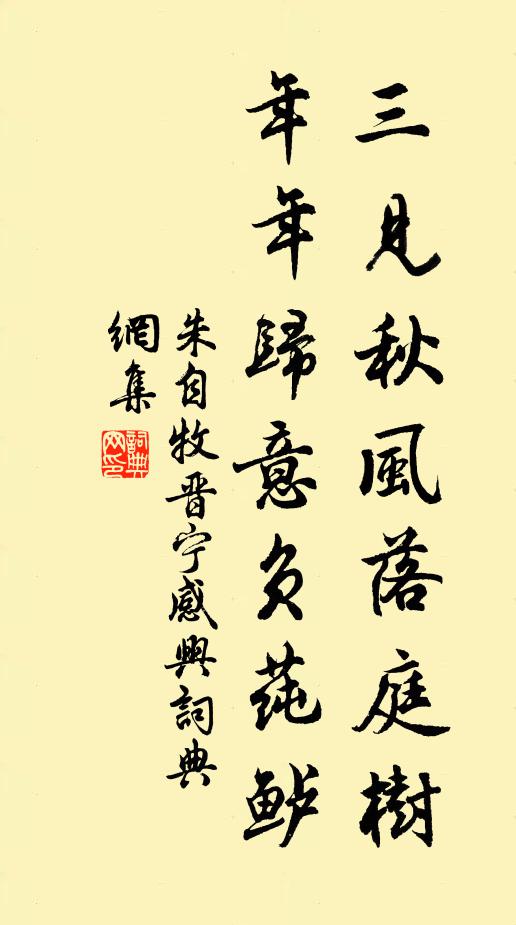 三見秋風落庭樹
年年歸意負蒓鲈
朱自牧晋宁感興詞典
網集
詞典網印